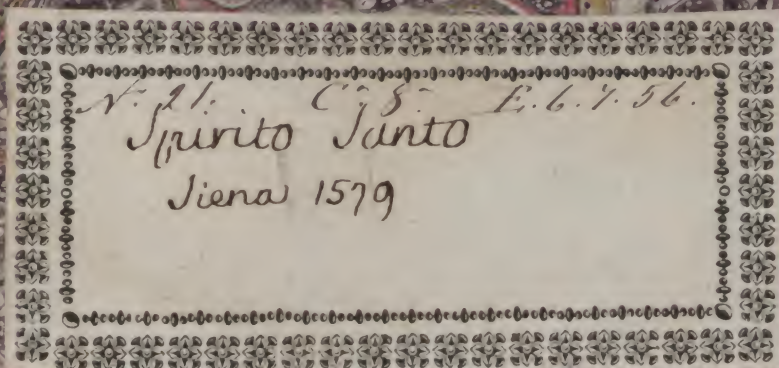 N. 21. C. 8. E. 6. 7. 56.
Spirito Santo
Siena 1579